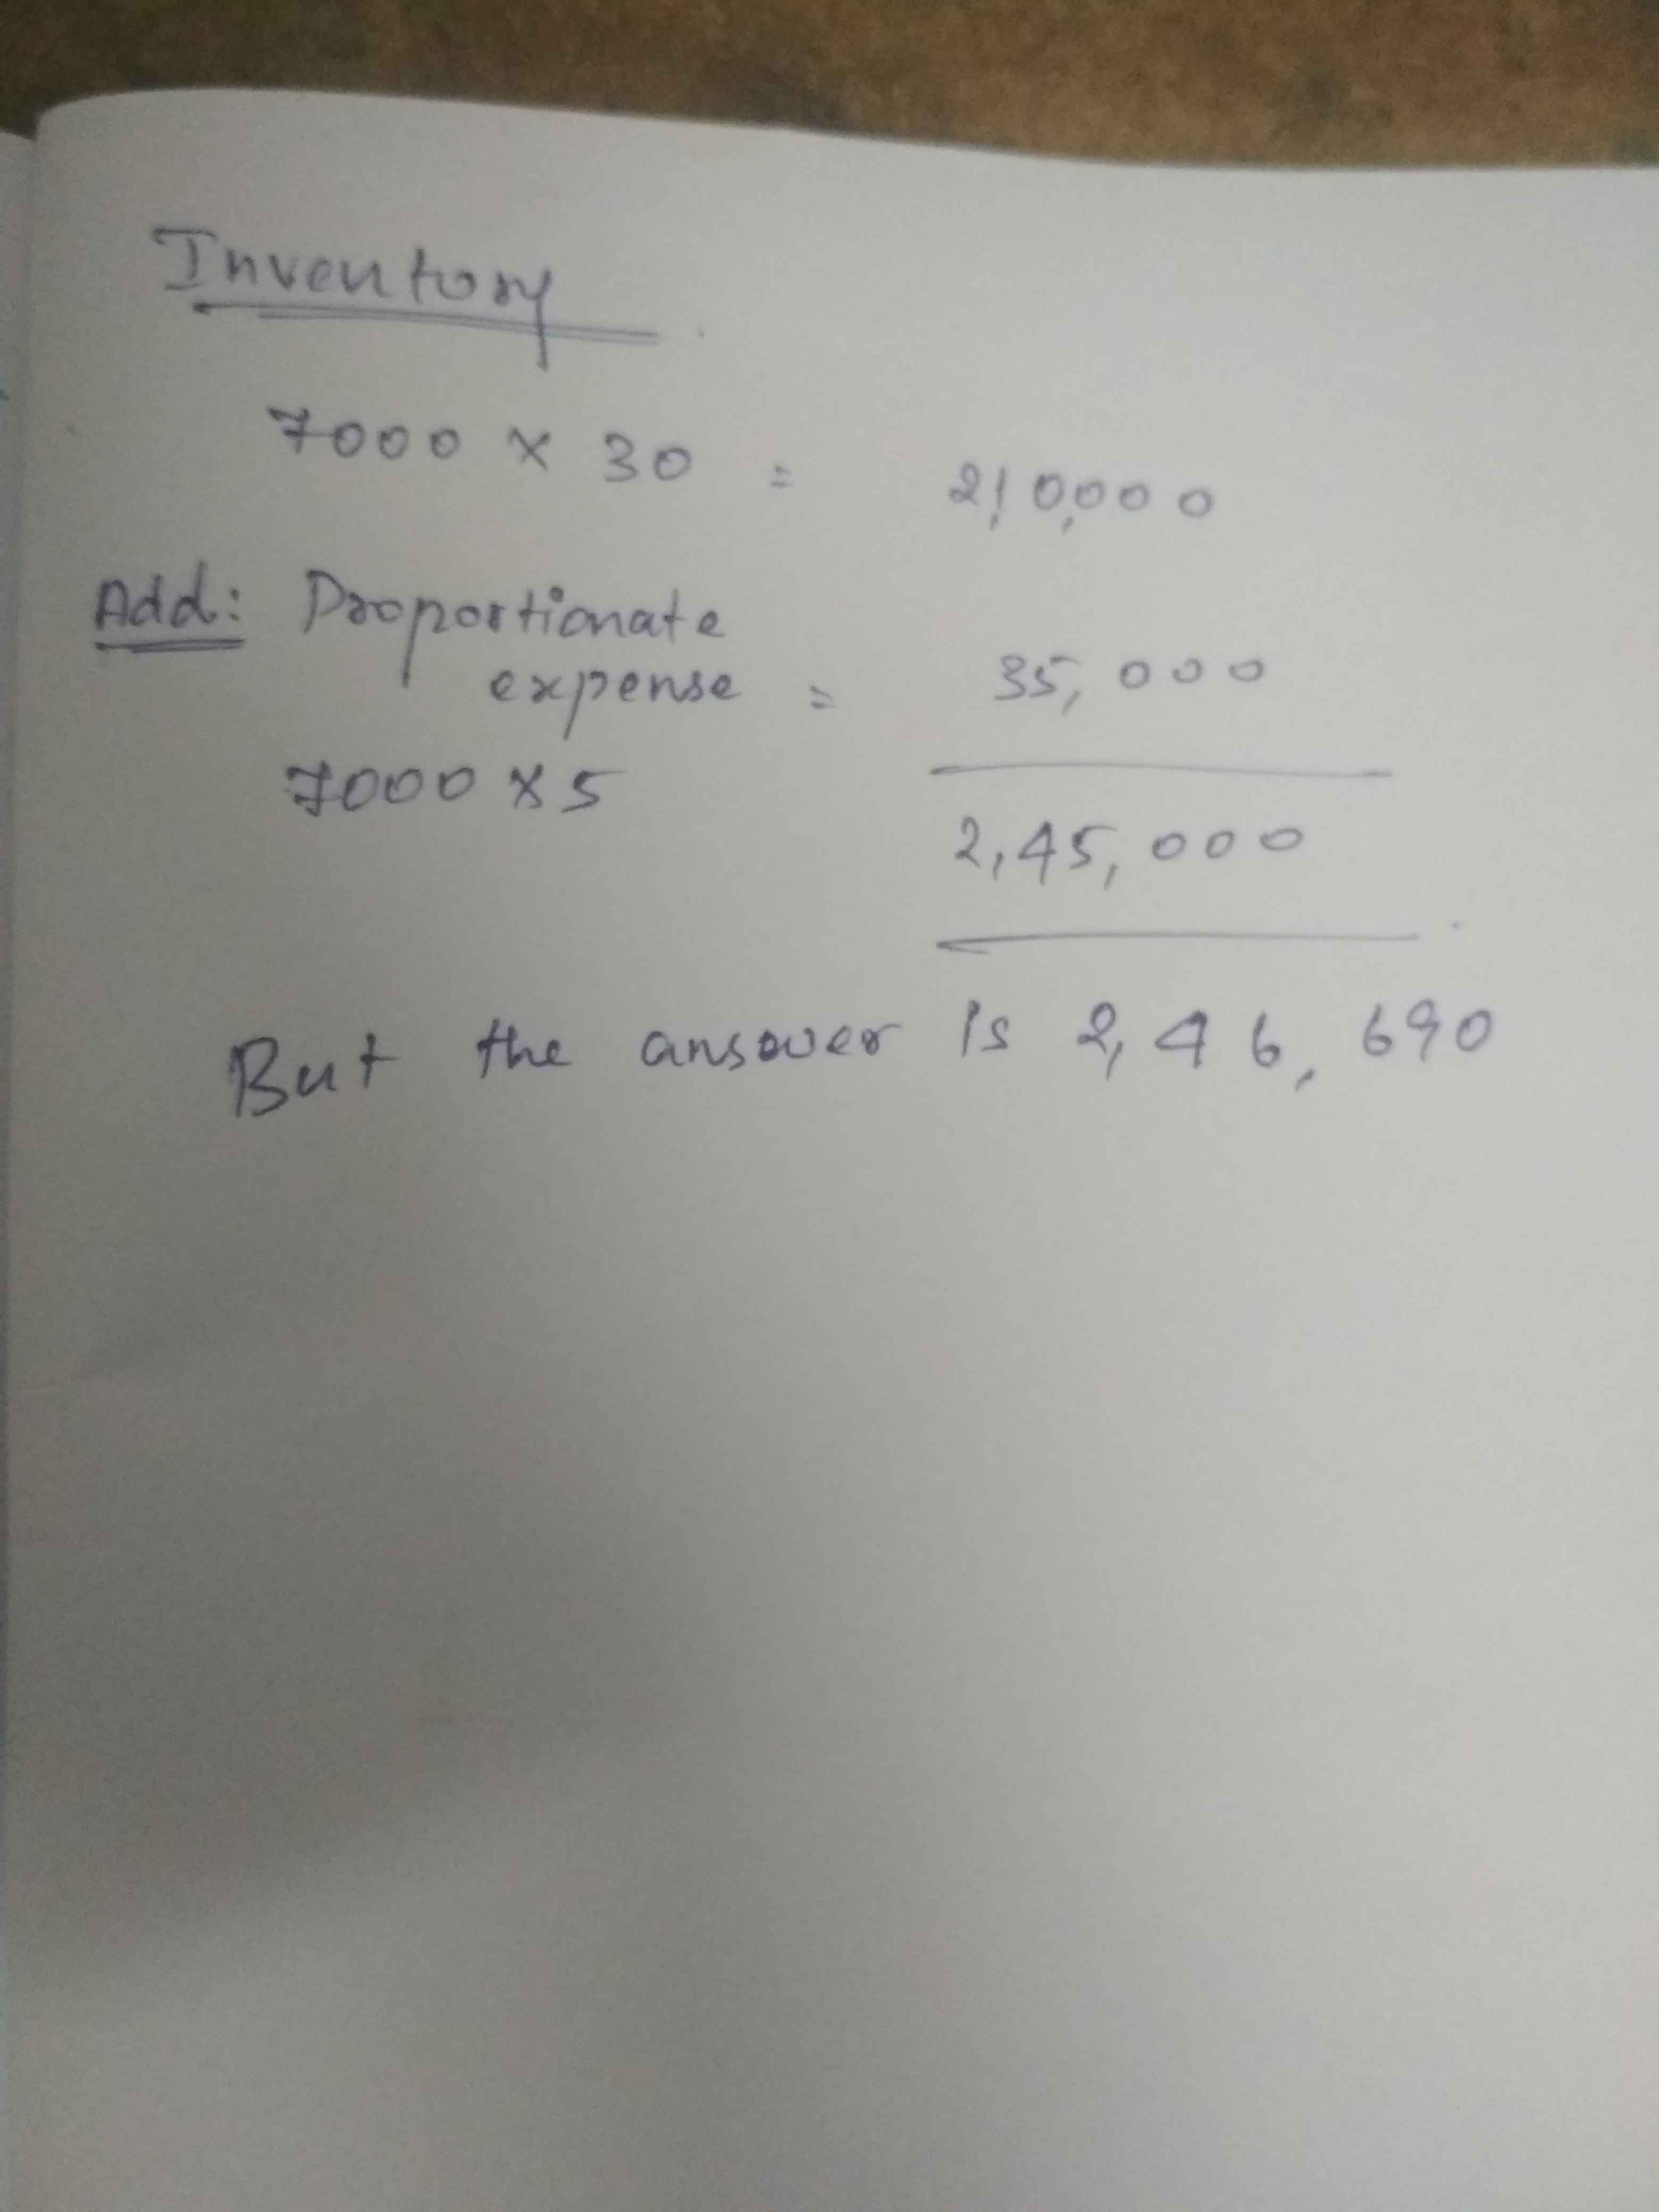 Inventory
7000 × 30 = 2,10,000
Add: Proportionate
expense = 35,000
7000 × 5
2,45,000
But the answer is 2,46,690